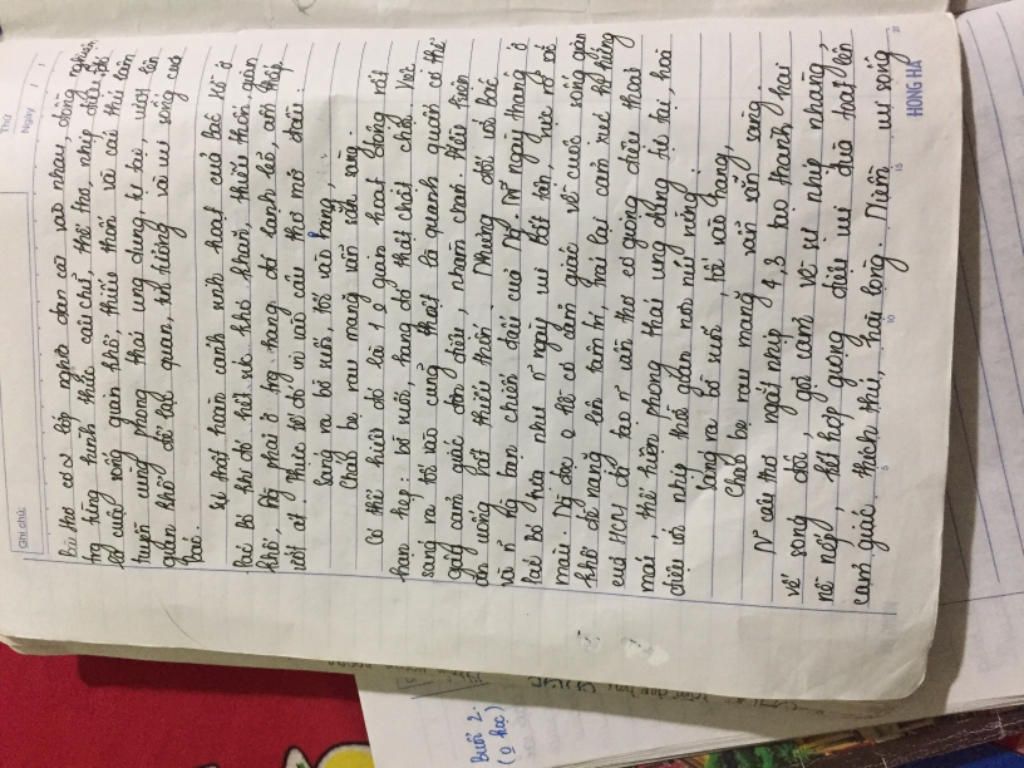 Thứ
Ngày / /
Ghi chú:
bài thơ có 2 lớp nghĩa đan cài vào nhau, đồng nghiên,
từng hình thức câu chữ, thể thơ, nhịp điệu,
cuộc sống gian khổ, thiếu thốn và cái thú lâm
tuyền cùng phong thái ung dung, tự tại, vượt lên
gian khổ để lạc quan, tin tưởng và vui sống của
Bác.
Sự thật hoàn cảnh sinh hoạt của Bác Hồ ở
Pác Bó khi đó hết sức khó khăn, thiếu thốn, gian
khổ, phải ở trg hang đá lạnh lẽo, ẩm thấp
ướt át. Thực tế đó đi vào câu thơ mở đầu:
Sáng ra bờ suối, tối vào hang,
Cháo bẹ rau măng vẫn sẵn sàng.
Có thể hiểu đó là 1 gian hoạt động rất
hạn hẹp: bờ suối, hang đá thật chật chội. Việc
sáng ra, tối vào cũng thật là quanh quẩn có thể
gây cảm giác đơn điệu, nhàm chán. Điều kiện
ăn uống thật thiếu thốn. Nhưng đối với Bác
và ng bạn chiến đấu của Ng. ngày tháng ở
Pác Bó hầu như ngày vui bất tận, rực rỡ
màu. Ng đọc có cảm giác về cuộc sống gian
khổ đè nặng lên tâm trí, trái lại cảm xúc hứng
của HCM đã tạo vần thơ có giọng điệu thoải
mái, thể hiện phong thái ung dung tự tại, hoà
điệu với nhịp thở gần nơi núi rừng.
Sáng ra bờ suối, tối vào hang,
Cháo bẹ rau măng vẫn sẵn sàng.
câu thơ ngắt nhịp 4,3 tạo thành hai
vế song đối, gợi cảm về sự nhịp nhàng,
nề nếp, kết hợp giọng điệu vui đùa toát lên
cảm giác thích thú, hài lòng. Niềm vui sống
5
10
15
HONG HA
Buổi 2.